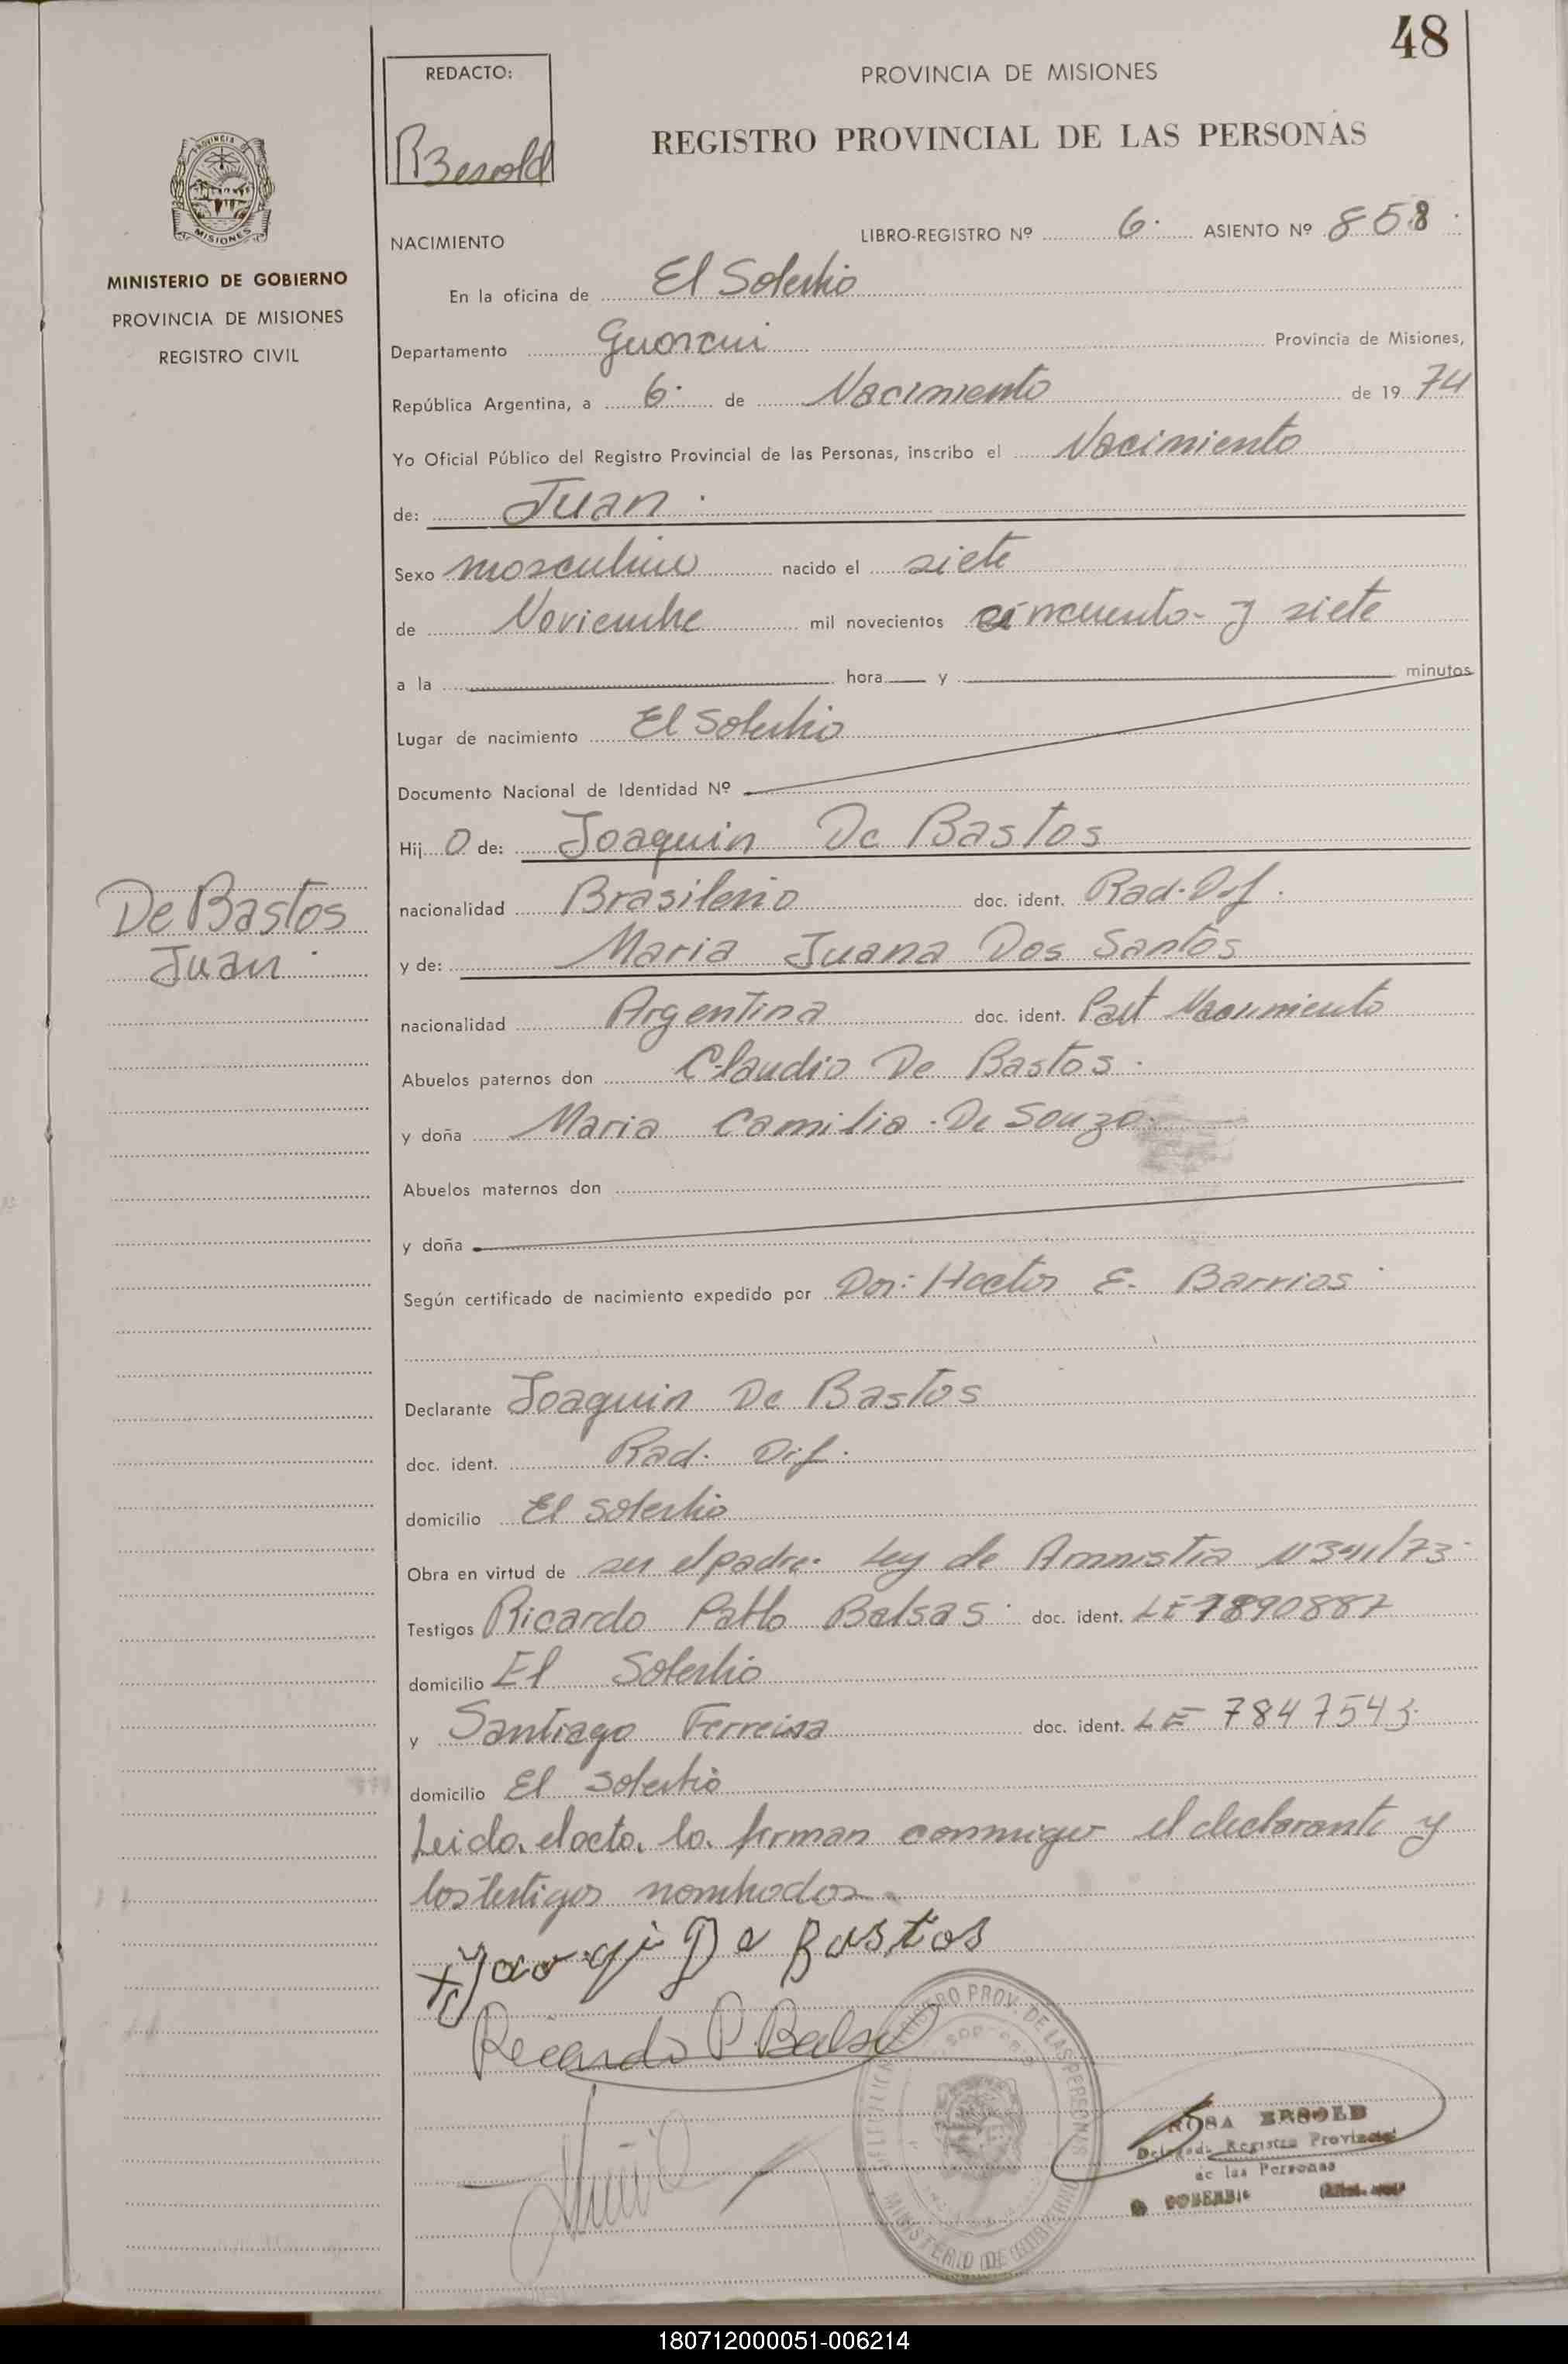 48
REDACTO:
Besold
PROVINCIA DE MISIONES
REGISTRO PROVINCIAL DE LAS PERSONAS
PROVINCIA DE
MISIONES
MINISTERIO DE GOBIERNO
PROVINCIA DE MISIONES
REGISTRO CIVIL
NACIMIENTO
LIBRO-REGISTRO Nº 6. ASIENTO Nº 858
En la oficina de El Soberbio
Departamento Guarani Provincia de Misiones,
República Argentina, a 6. de Nacimiento de 1974
Yo Oficial Público del Registro Provincial de las Personas, inscribo el Nacimiento
de: Juan.
Sexo masculino nacido el siete
de Noviembre mil novecientos cincuenta y siete
a la hora y minutos
Lugar de nacimiento El Soberbio
Documento Nacional de Identidad Nº
Hijo de: Joaquin De Bastos
nacionalidad Brasilerio doc. ident. Rad. Def.
De Bastos
Juan
y de: Maria Juana Dos Santos
nacionalidad Argentina doc. ident. Part Nacimiento
Abuelos paternos don Claudio De Bastos.
y doña Maria Camilia De Souza
Abuelos maternos don
y doña
Según certificado de nacimiento expedido por Dor: Hector E. Barrios
Declarante Joaquin De Bastos
doc. ident. Rad. Dif.
domicilio El Soberbio
Obra en virtud de ser el padre. Ley de Amnistia Nº /73
Testigos Ricardo Pablo Balsas doc. ident. LE 7890887
domicilio El Soberbio
y Santiago Ferreira doc. ident. LE 7847543.
domicilio El Soberbio
Leida el acta, la firman conmigo el declarante y
los testigos nombrados.
De Bastos
Ricardo P. Balsa
REGISTRO PROV. DE LAS PERSONAS
MINISTERIO DE GOBIERNO
ROSA BESOLD
Delegada Registro Provincial
de las Personas
SOBERBIO
180712000051-006214